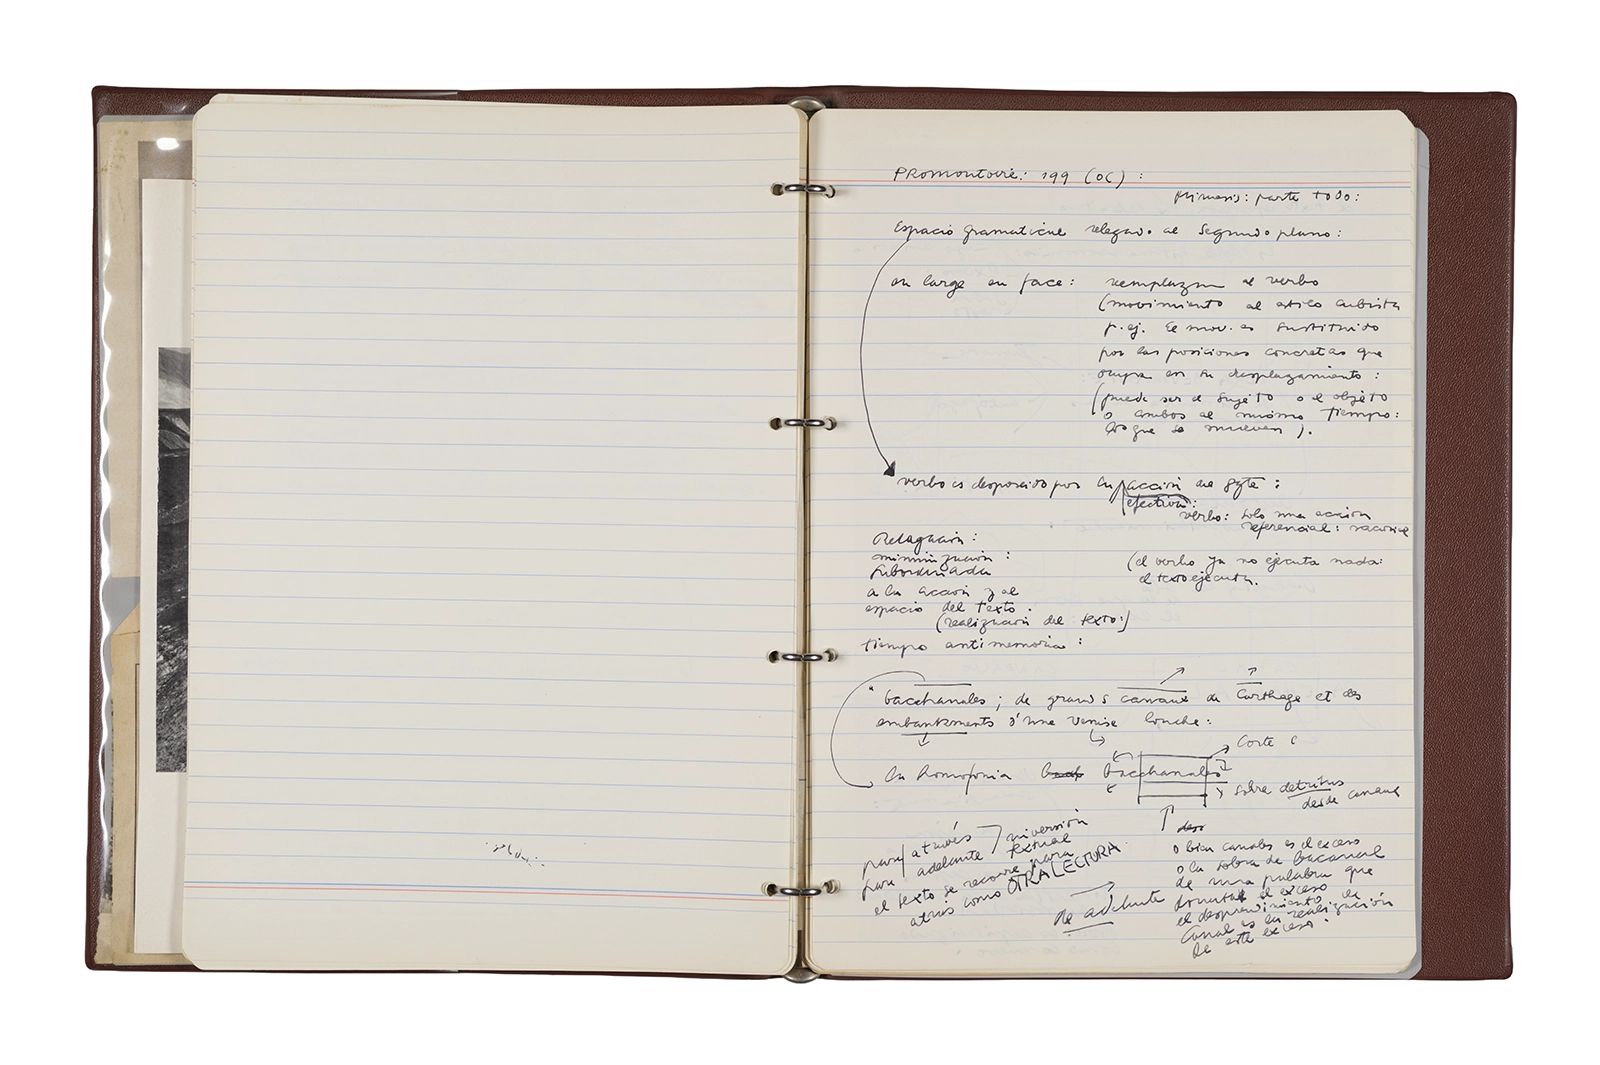 PROMONTOIRE: 199 (OC) :
Mimesis: parte todo:
Espacio gramatical relegado al segundo plano:
en large en face: remplazan al verbo
(movimiento al estilo cubista
p. ej. El mov. es sustituido
por las posiciones concretas que
ocupa en su desplazamiento:
(puede ser el sujeto o el objeto
o ambos al mismo tiempo:
los que se mueven).
verbo es desposeido por la acción del
efectiva:
verbo: solo una acción
referencial:
Relegación:
minimización:
subordinada
a la acción y al
espacio del texto.
(realización del texto:)
(el verbo ya no ejecuta nada:
el texto ejecuta.
tiempo antimemoria:
"bacchanales; de grands canaux de Carthage et des
embankments d'une Venise louche:
la homofonia bacchanales
Corte
sobre detritus
desde canaux
para/ a través
para/ adelante
inversión
textual
el texto se recorre para
atrás como OTRA LECTURA
de adelante
o bien canales es el exceso
o la sobra de bacanal
de una palabra que
el exceso
el desprendimiento de
Canal es la realización
de este exceso.